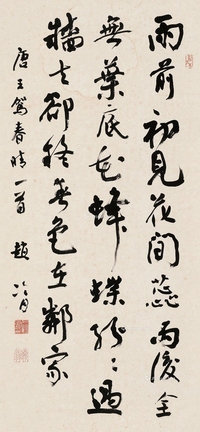 雨前初見花間蕊雨後全
無葉底花蜂蝶紛〻過
牆去卻疑春色在鄰家
唐王駕春晴一首 趙冷月